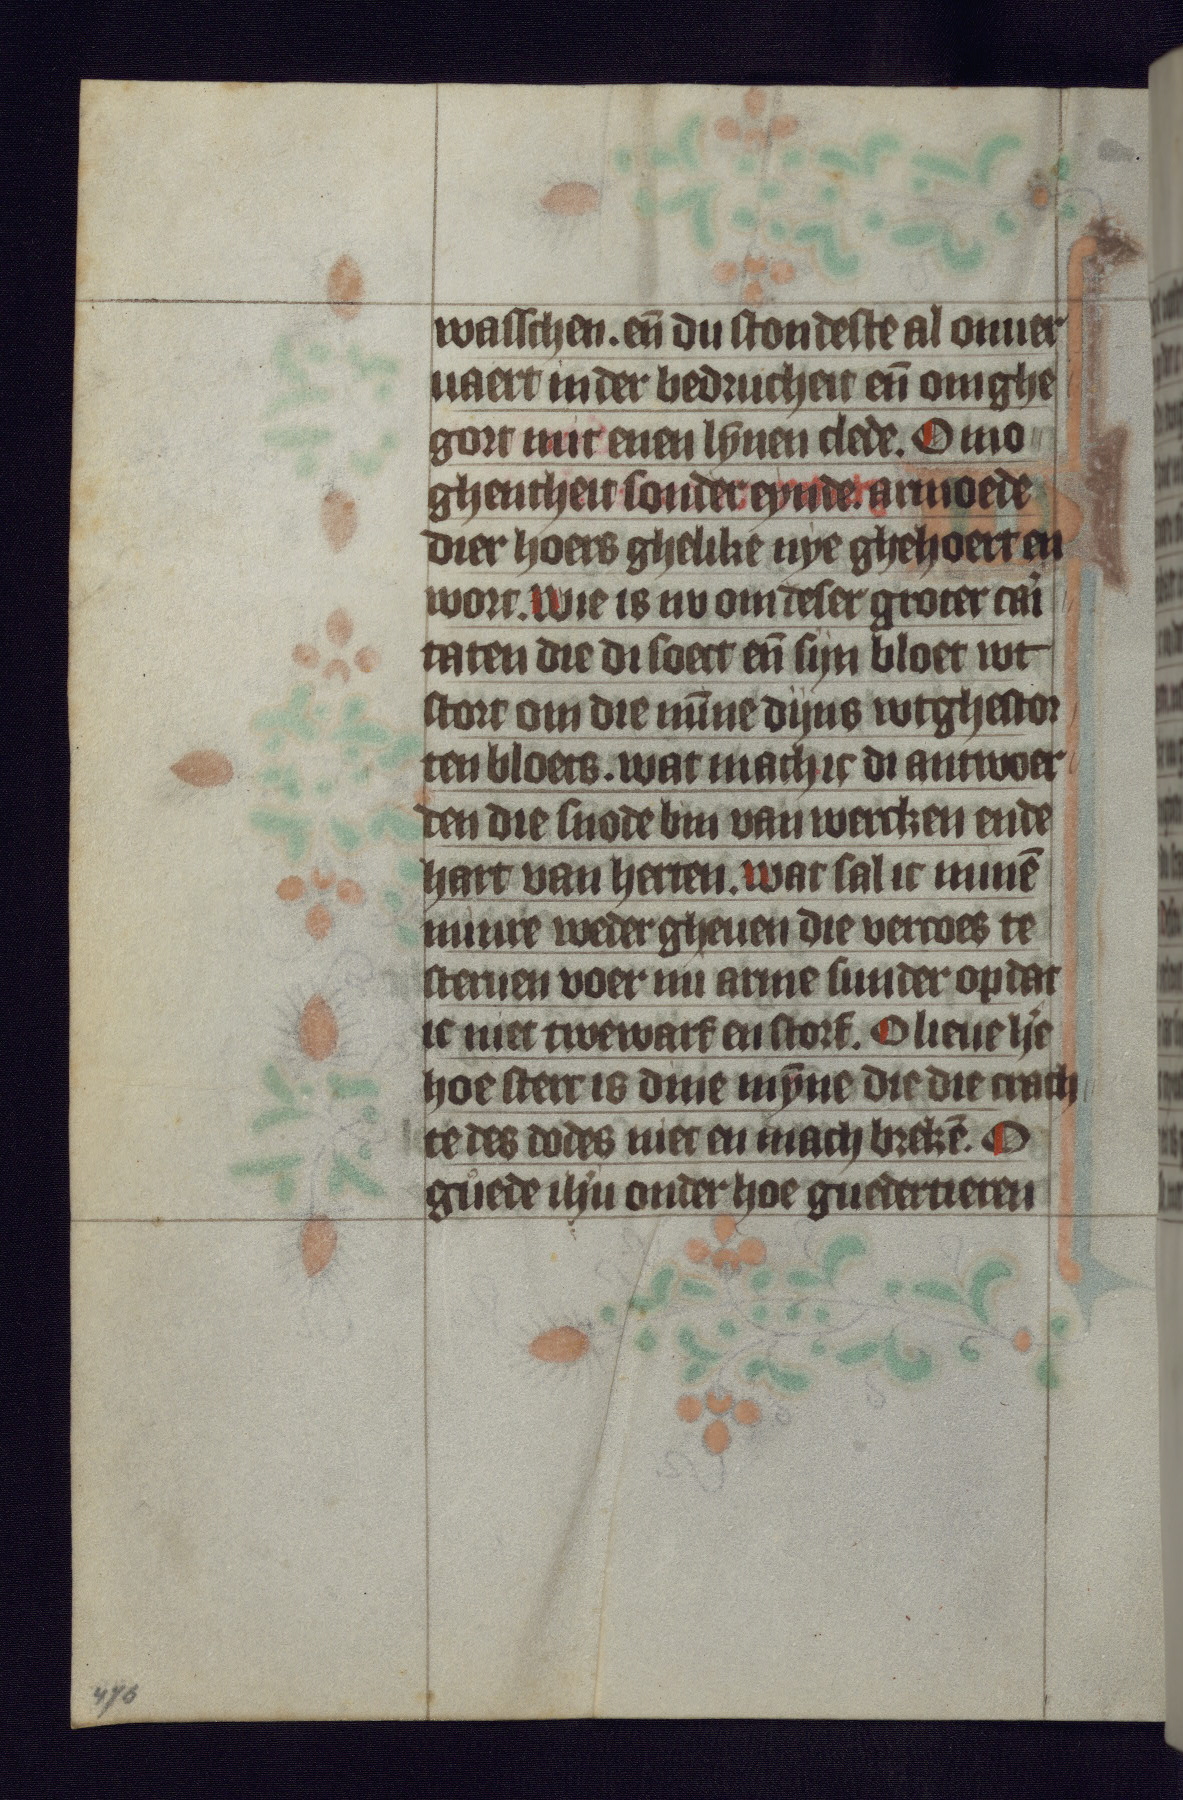 wasschen. en̄ du stondeste al onuer
uaert in der bedructheit en̄ omghe
gort mit enen lȳnen clede. O mo
ghentheit sonder eynde. armoede
dier hoers ghelike nye ghehoert en
wort. Wie is nv om deser groter cari
taten die di soect en̄ sijn bloet wt
stort om die mīne dijns wtghestor
ten bloets. wat mach ic di antwoer
den die snode bin van wercken ende
hart van herten. wat sal ic minē
minre weder gheuen die vercoes te
steruen voer mi arme sunder op dat
ic niet twewarf en storf. O lieue he
hoe sterc is dine mȳne die die crach
te des dodes niet en mach brekē. O
guede ihū onder hoe guedertieren
476